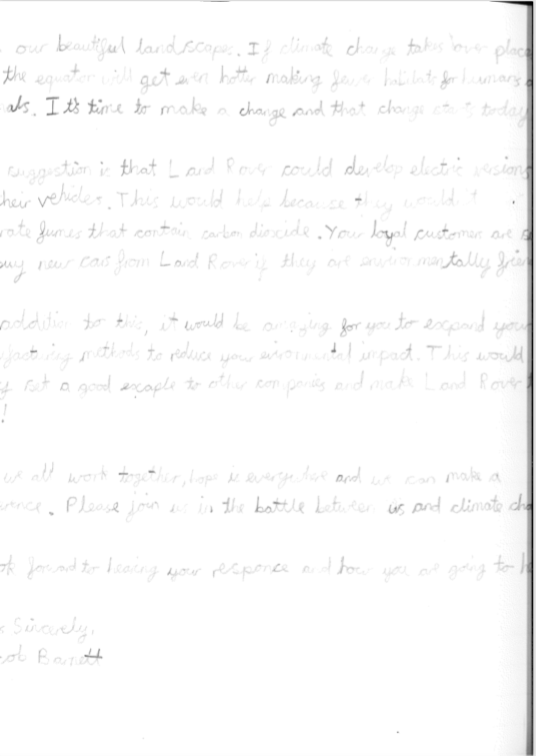 our beautiful landscapes. If climate change takes over place
the equator will get even hotter making fewer habitats for humans
als. It's time to make a change and that change starts today
suggestion is that Land Rover could develop electric versions
heir vehicles. This would help because they wouldn't
rate fumes that contain carbon dioxide. Your loyal customer are
uy new cars from Land Rover if they are environmentally frien
addition to this, it would be amazing for you to expand your
facturing methods to reduce your enviromental impact. This would
set a good exaple to other companies and make Land Rover
!
we all work together, hope is everywhere and we can make a
erence. Please join us in the battle between us and climate cha
ok forward to hearing your responce and how you are going to he
s Sincerely,
ob Barrett